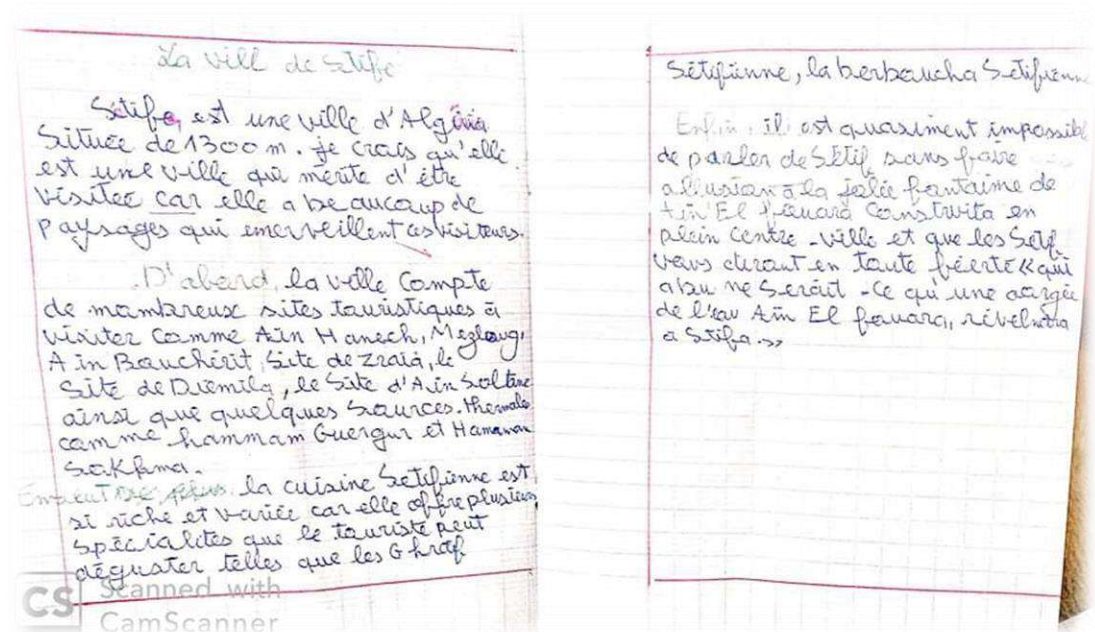 La vill de Stife
Sétife, est une ville d'Algéria
Située de 1300 m. je crais qu'elle
est une ville qui mérite d'être
visitée car elle a beaucaup de
paysages qui emerveillent ces visiteurs.
D'abard, la ville Compte
de mambreuse sites tauristiques à
visiter Camme Ain Hanech, Mezlaug,
Ain Bauchirit, Site de Zraia, le
Site de Djemila, le Site d'Ain Soltane
ainsi que quelques Saurces. thermals
camme hammam Guergur et Hammam
Sakhma.
la cuisine Setifienne est
si riche et variée car elle offre plusieurs
spécialités que le tauriste peut
déguster telles que les Ghraf
Sétifienne, la berbaucha Setifienne
Enfin, il est quasiment impossibl
de parler de Sétif sans faire
allusian à la jalie fantaime de
Ain El Fauara Canstruita en
plein Centre-ville et que les Setif
vaus dirant en taute fierté « qui
a bu ne Serait-Ce qu'une gargée
de l'eau Ain El fauara,
a Stifa.»
CS Scanned with
CamScanner